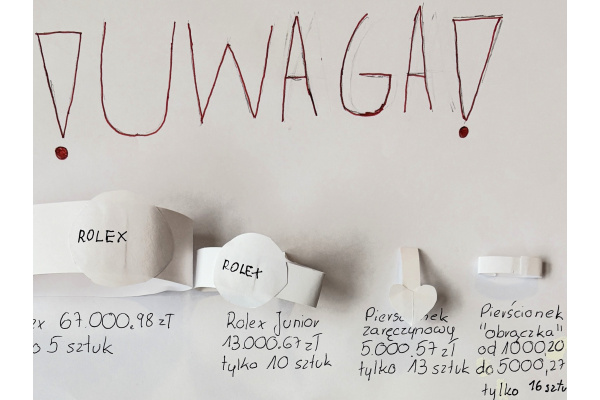 !UWAGA!
ROLEX
ROLEX
ex 67.000,98 zł
o 5 sztuk
Rolex Junior
13.000.67 zł
tylko 10 sztuk
Pierś nek
zaręczynowy
5.000.57 zł
tylko 13 sztuk
Pierścionek
"obrączka"
od 1000,20
do 5000,27
tylko 16 sztu